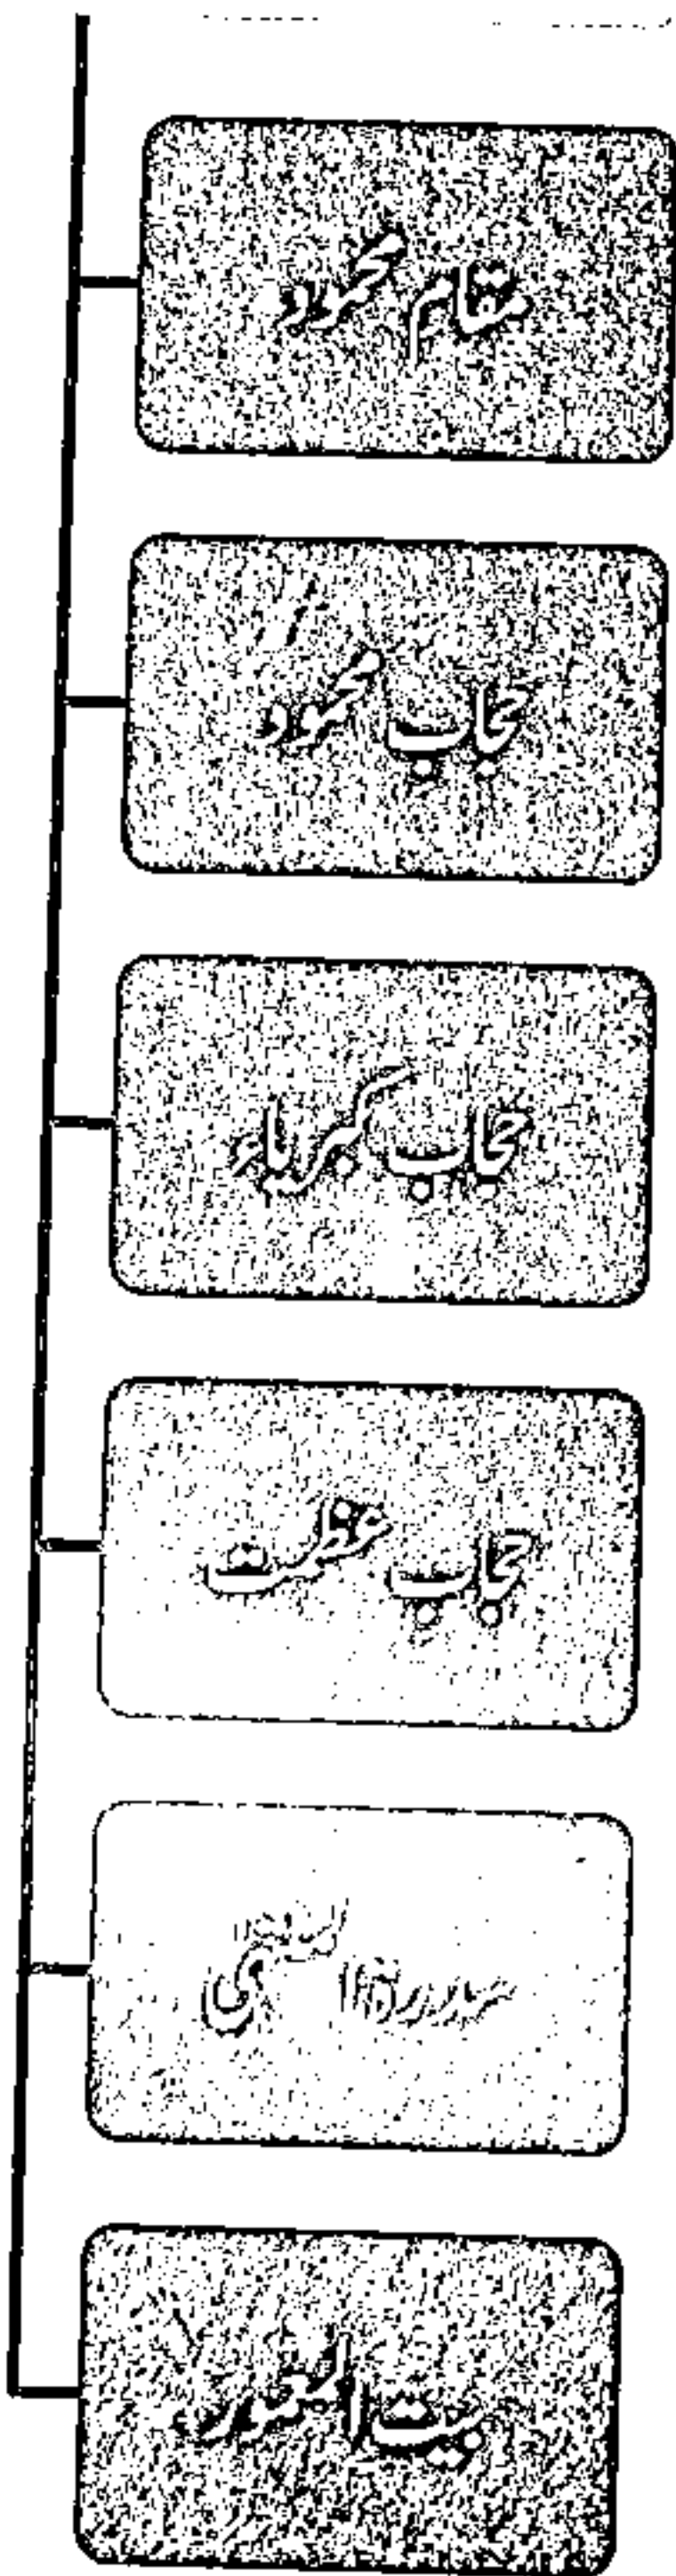 مقام محمود
حجاب محمود
حجاب کبریاء
حجاب عظمت
سدرۃ المنتہی
بیت المعمور